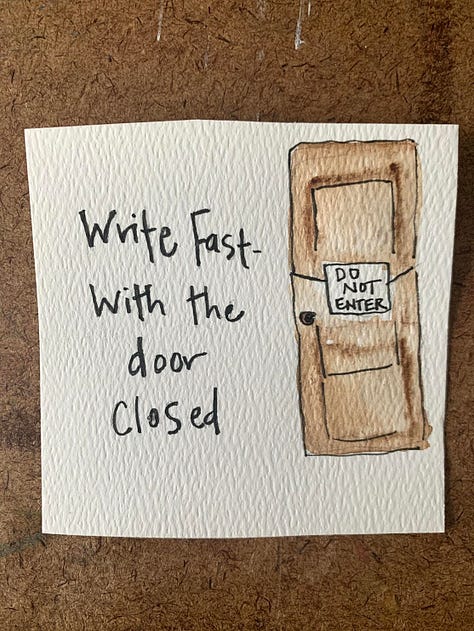 Write Fast-
With the
door
Closed
DO
NOT
ENTER